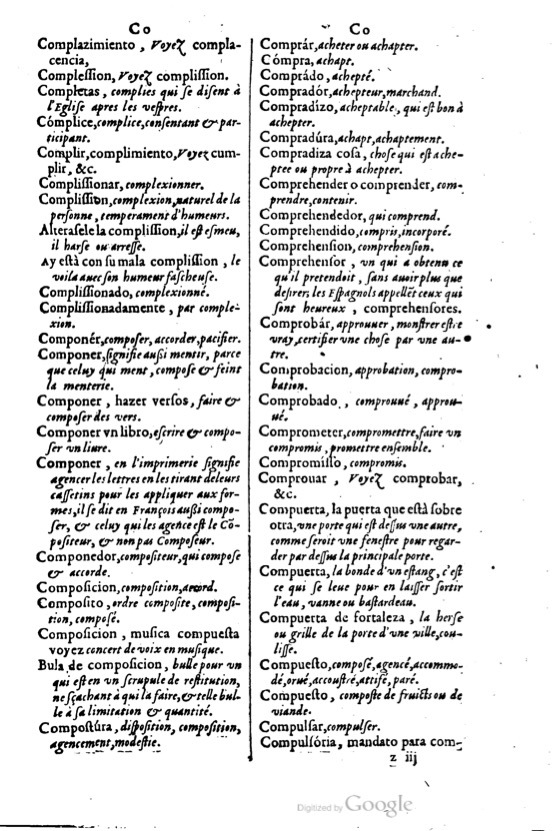 Co
Complazimiento, Voyeζ compla-
cencia,
Complession, Voyeζ complission.
Completas, complies qui se disent à
l'Eglise apres les vespres.
Cómplice, complice, consentant & par-
ticipant.
Complir, complimiento, Voyez cum-
plir, &c.
Complissionar, complexionner.
Complission, complexion, naturel de la
personne, temperament d'humeurs.
Alterasele la complission, il est esmeu,
il harse ou arresse.
Ay està con su mala complission, le
voila auec son humeur fascheuse.
Complissionado, complexionné.
Complissionadamente, par comple-
xion.
Componér, composer, accorder, pacifier.
Componer, signifie aussi mentir, parce
que celuy qui ment, compose & feint
la menterie.
Componer, hazer versos, faire &
composer des vers.
Componer vn libro, escrire & compo-
ser vn liure.
Componer, en l'imprimerie signifie
agencer les lettres en les tirant de leurs
cassetins pour les appliquer aux for-
mes, il se dit en François aussi compo-
ser, & celuy qui les agence est le Cõ-
positeur, & non pas Composeur.
Componedor, compositeur, qui compose
& accorde.
Composicion, composition, acord.
Composito, ordre composite, composi-
tion, composé.
Composicion, musica compuesta
voyez concert de voix en musique.
Bula de composicion, bulle pour vn
qui est en vn scrupule de restitution,
ne sçachant à qui la faire, & telle bul-
le à sa limitation & quantité.
Compostúra, disposition, composition,
agencement, modestie.
Co
Comprár, acheter ou achapter.
Cómpra, achapt.
Comprádo, achepté.
Compradór, achepteur, marchand.
Compradízo, acheptable, qui est bon à
achepter.
Compradúra, achapt, achaptement.
Compradiza cosa, chose qui est ache-
ptee ou propre à achepter.
Comprehender o comprender, com-
prendre, contenir.
Comprehendedor, qui comprend.
Comprehendido, compris, incorporé.
Comprehension, comprehension.
Comprehensor, vn qui a obtenu ce
qu'il pretendoit, sans auoir plus que
desirer, les Espagnols appellẽt ceux qui
sont heureux, comprehensores.
Comprobár, approuuer, monstrer estre
vray, certifier vne chose par vne au-
tre.
Comprobacion, approbation, compro-
bation.
Comprobado, comprouué, approu-
ué.
Comprometer, compromettre, faire vn
compromis, promettre ensemble.
Compromisso, compromis.
Comprouar, Voyeζ comprobar,
&c.
Compuerta, la puerta que està sobre
otra, vne porte qui est dessus vne autre,
comme seroit vne fenestre pour regar-
der par dessus la principale porte.
Compuerta, la bonde d'vn estang, c'est
ce qui se leue pour en laisser sortir
l'eau, vanne ou bastardeau.
Compuerta de fortaleza, la herse
ou grille de la porte d'vne ville, cou-
lisse.
Compuesto, composé, agencé, accommo-
dé, orné, accoustré, attifé, paré.
Compuesto, composte de fruicts ou de
viande.
Compulsar, compulser.
Compulsória, mandato para com-
z iij
Digitized by Google